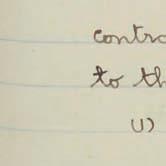 contro
to th
(1)